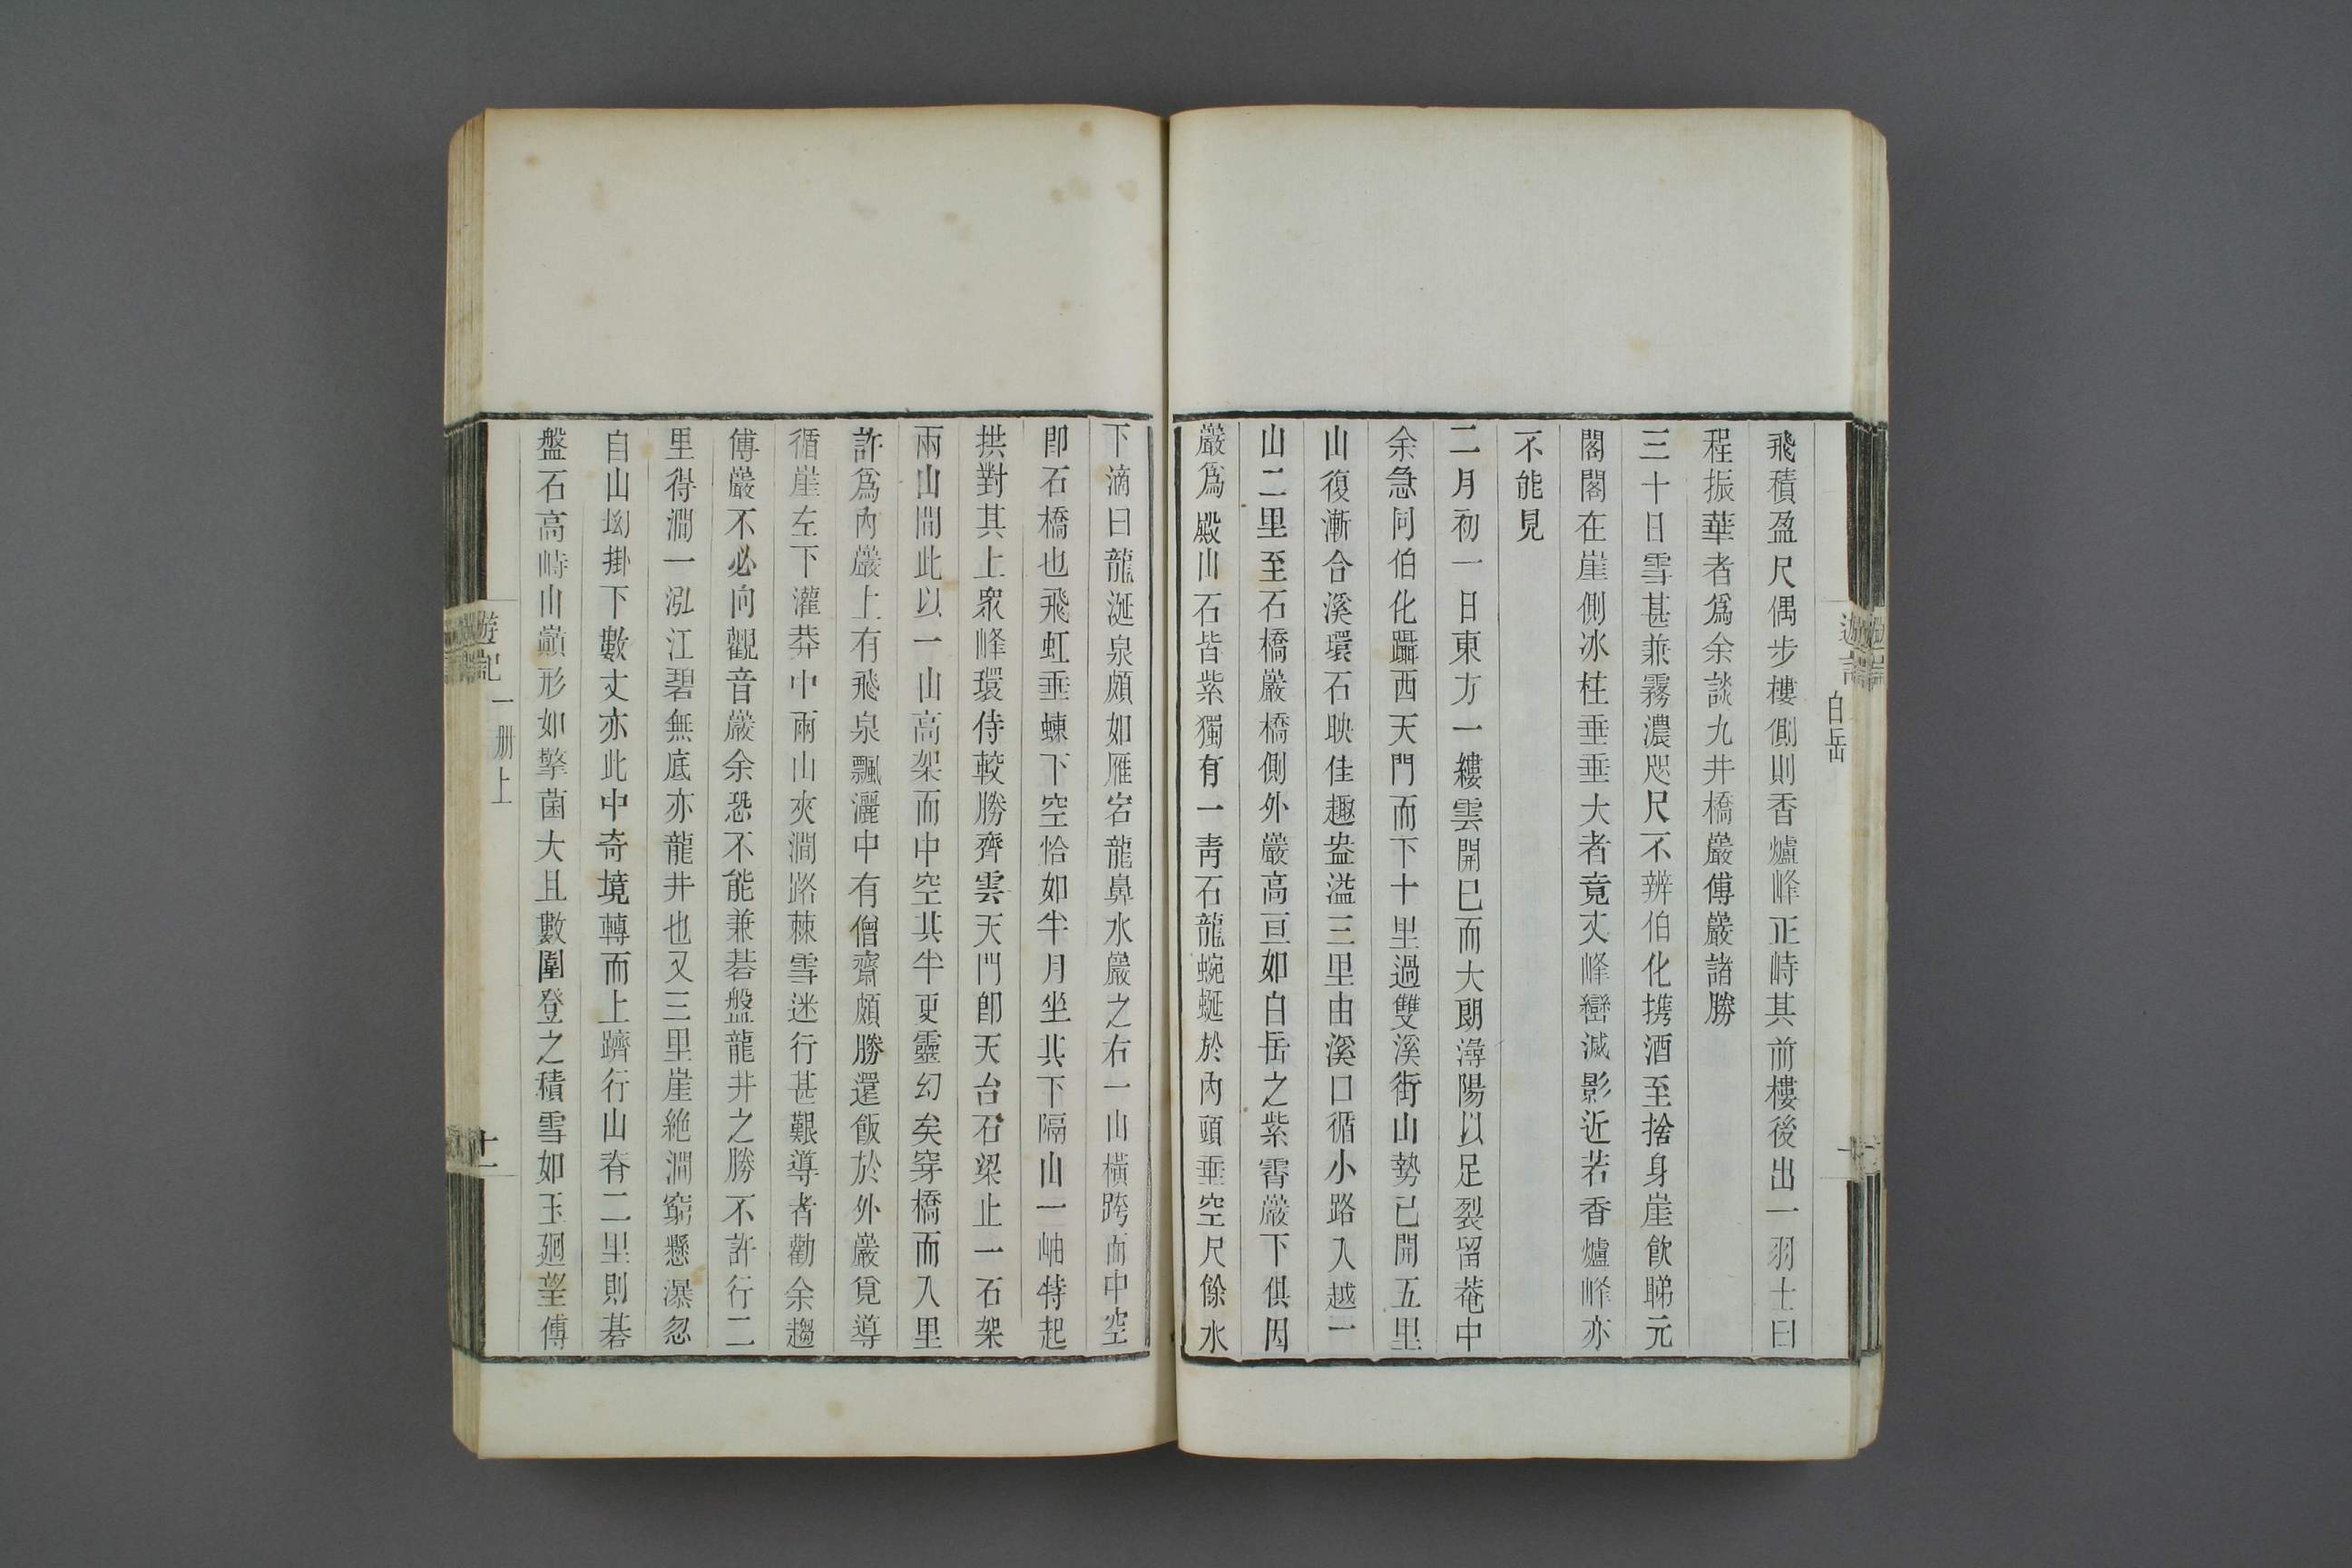 遊記
白岳
飛積盈尺偶步樓側則香爐峰正峙其前樓後出一羽士曰
程振華者爲余談九井橋巖傅巖諸勝
三十日雪甚兼霧濃咫尺不辨伯化携酒至捨身崖飮睇元
閣閣在崖側冰柱垂垂大者竟丈峰巒滅影近若香爐峰亦
不能見
二月初一日東方一縷雲開已而大朗潯陽以足裂留菴中
余急同伯化躡西天門而下十里過雙溪街山勢已開五里
山復漸合溪環石映佳趣盎溢三里由溪口循小路入越一
山二里至石橋巖橋側外巖高亘如白岳之紫霄巖下俱因
巖爲殿山石皆紫獨有一靑石龍蜿蜒於內頭垂空尺餘水
下滴曰龍涎泉頗如雁宕龍鼻水巖之右一山橫跨而中空
卽石橋也飛虹垂蝀下空恰如半月坐其下隔山一岫特起
拱對其上衆峰環侍較勝齊雲天門卽天台石梁止一石架
兩山間此以一山高架而中空其半更靈幻矣穿橋而入里
許爲內巖上有飛泉飄灑中有僧齋頗勝還飯於外巖覓導
循崖左下灌莽中兩山夾澗路棘雪迷行甚艱導者勸余趨
傅巖不必向觀音巖余恐不能兼碁盤龍井之勝不許行二
里得澗一泓江碧無底亦龍井也又三里崖絶澗窮懸瀑忽
自山坳掛下數丈亦此中奇境轉而上躋行山脊二里則碁
盤石高峙山巔形如擎菌大且數圍登之積雪如玉廻望傅
遊記
一册上
十一